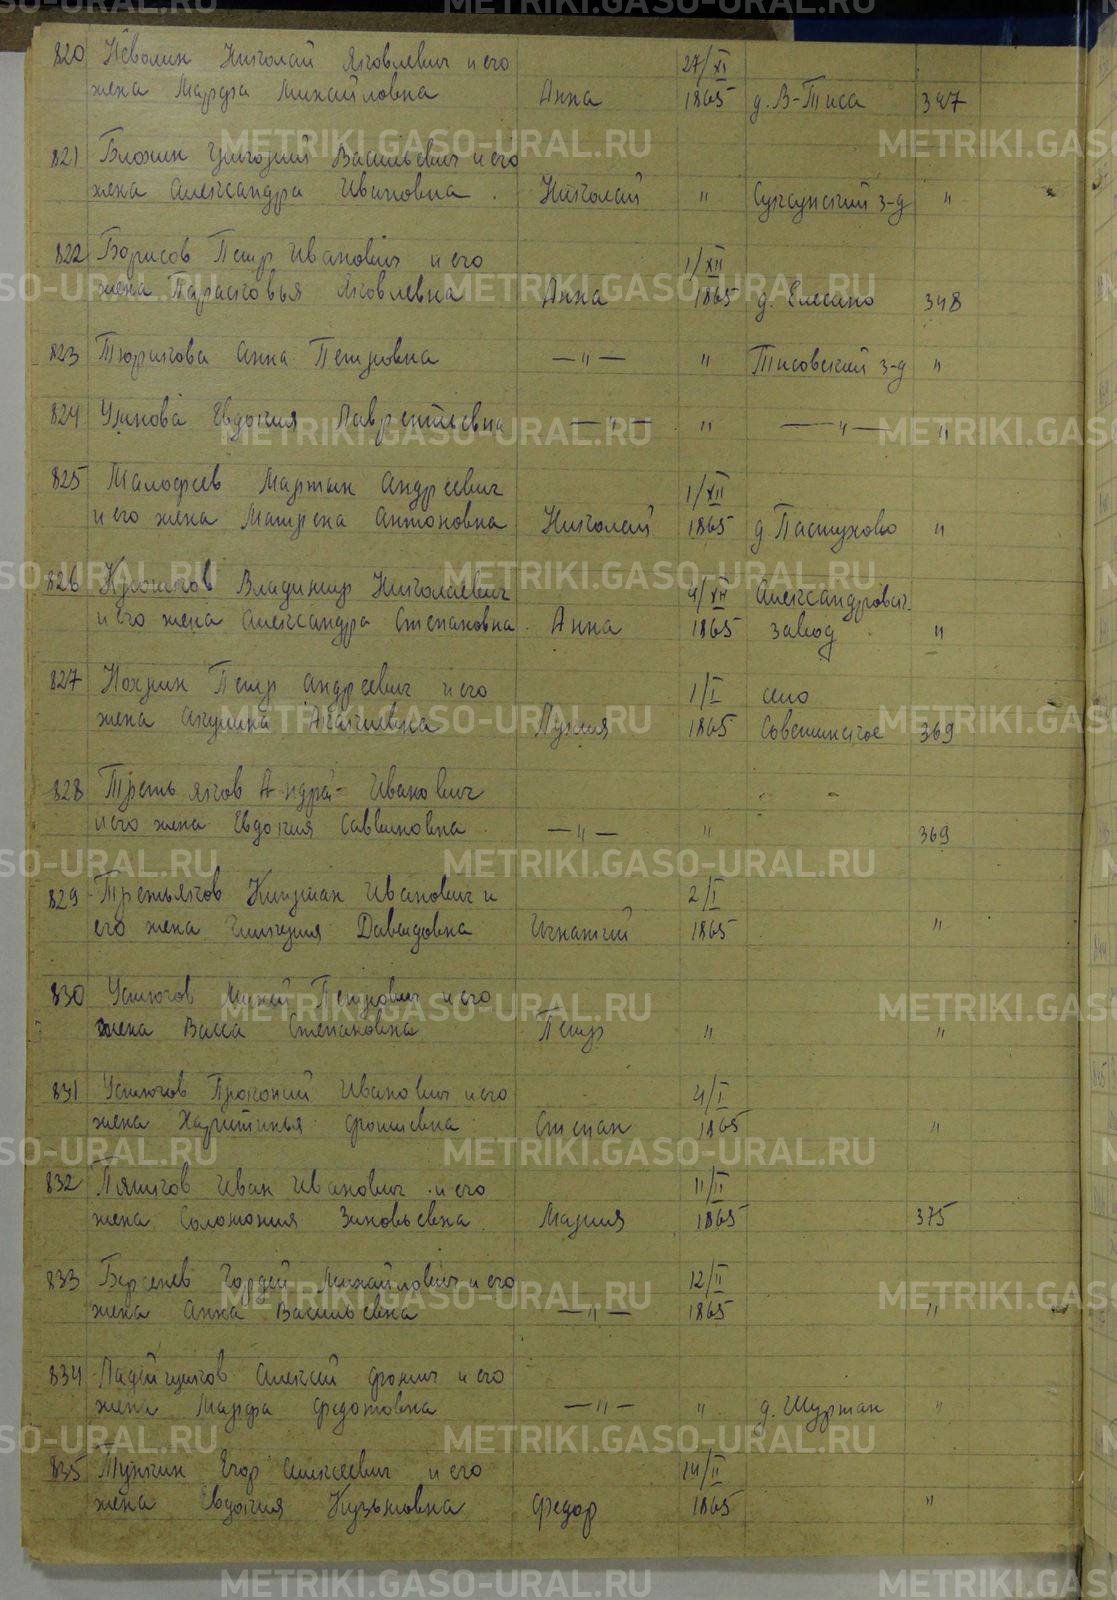 820 Неволин Николай Яковлевич и его 27/XI
жена Марфа Михайловна Анна 1865 д. В-Тиса 347
821 Блохин Григорий Васильевич и его
жена Александра Ивановна. Николай " Суксунский з-д "
822 Борисов Петр Иванович и его 1/XII
жена Парасковья Яковлевна Анна 1865 д. 348
823 Тюрикова Анна Петровна —"— " Тисовский з-д "
824 Евдокия Лаврентьевна —"— " —"— "
825 Малофеев Мартын Андреевич 1/XII
и его жена Матрена Антоновна Николай 1865 д. Пастухово "
826 Крюков Владимир Николаевич 4/XII Александровск.
и его жена Александра Степановна Анна 1865 завод "
827 Петр Андреевич и его 1/I село
жена Акулина Лукия 1865 Советинское 369
828 Третьяков Андрей Иванович
и его жена Евдокия Саввиновна —"— " 369
829 Третьяков Иванович и 2/I
его жена Гликерия Давидовна Игнатий 1865 "
830 Устюгов Петрович и его
жена Васса Степановна Петр " "
831 Устюгов Прокопий Иванович и его 4/I
жена Харитинья Фокиевна Степан 1865 "
832 Пятков Иван Иванович и его 11/II
жена Соломония Зиновьевна Мария 1865 375
833 Берсенев Гордей Михайлович и его 12/II
жена Анна Васильевна —"— 1865 "
834 Ладейщиков Алексей Фокич и его
жена Марфа Федотовна —"— " д. Шуртан "
835 Егор Алексеевич и его 14/II
жена Евдокия Кузьмовна Федор 1865 "
METRIKI.GASO-URAL.RU